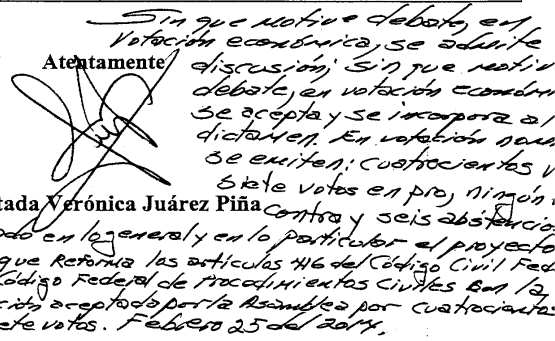 Sin que motive debate, en
votación económica, se admite
Atentamente
discusión; sin que motiv
debate, en votación económ
se acepta y se incorpora al
dictamen. En votación nom
se emiten: cuatrocientos v
siete votos en pro, ningún
tada Verónica Juárez Piña
contra y seis abstencio
do en lo general y en lo particular el proyecto
que Reforma los artículos 416 del Código Civil Fed
Código Federal de Procedimientos Civiles con la
ción aceptada por la Asamblea por cuatrocientos
ete votos. Febrero 25 del 2014.